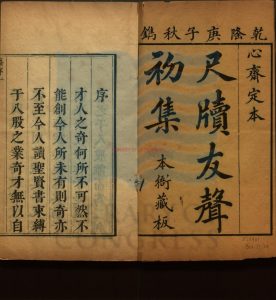 乾隆庚子秋鐫
心齋定本
尺牘友聲
初集
本衙藏板
序
才人之奇何所不可然不
能創今人所未有則奇亦
不至今人讀聖賢書束縛
于八股之業奇才無以自